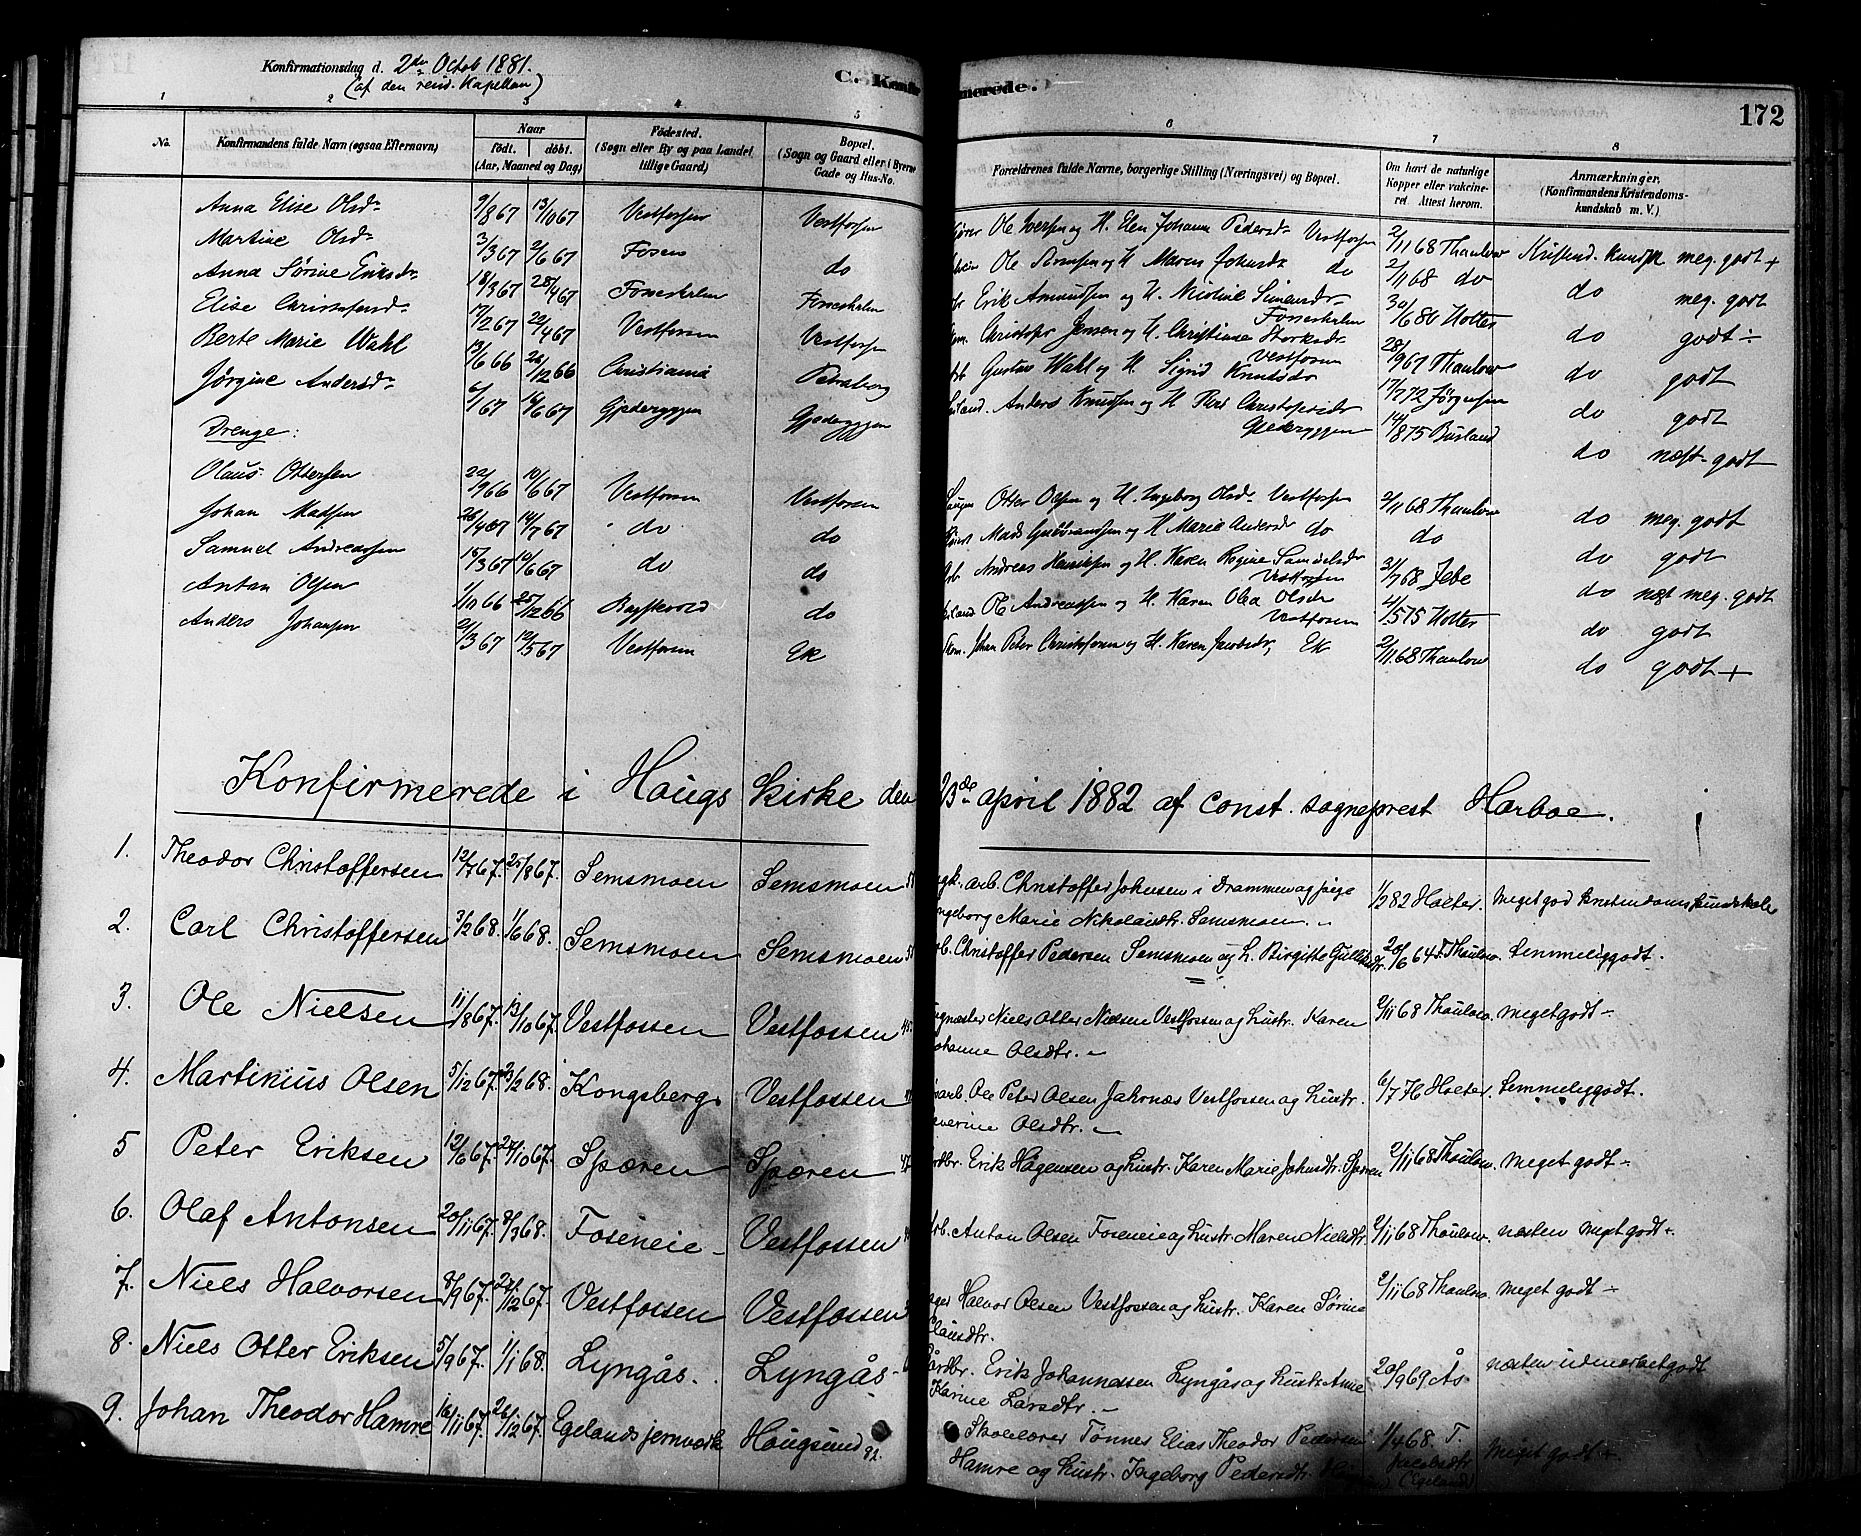 Konfirmationsdag d. 2den Octob 1881.
(af den resid. Kapellan)
C. Konfirmerede.
172
1 2 3 4 5 6 7 8
No. Konfirmandens fulde Navn (ogsaa Efternavn) Naar født. døbt. (Aar, Maaned og Dag) Fødested. (Sogn eller By og paa Landet tillige Gaard) Bopæl. (Sogn og Gaard eller i Byerne Gade og Hus-No. Forældrenes fulde Navne, borgerlige Stilling (Næringsvei) og Bopæl. Om havt de naturlige Kopper eller vakcineret. Attest herom. Anmærkninger. (Konfirmandens Kristendomskundskab m. V.)
Anna Elise Olsdr 9/8 67 13/10 67 Vestfossen Vestfossen Ole Iversen og H. Elen Johanne Pedersdr Vestfossen 2/11 68 Thaulow Kristend. kundsk meg. godt +
Martine Olsdr 3/3 67 2/6 67 Fosen do Ole og H Maren Johnsdr do 2/11 68 do do meg. godt
Anna Sørine Eriksdr 18/3 67 28/4 67 Foneskalm Foneskalm Erik Amundsen og H. Nicoline Simensdr Foneskalm 30/6 80 Hotter do godt ÷
Elise Christofersdr 17/2 67 22/4 67 Vestfossen Vestfossen Christofer Jensen og H. Christiane Storksdr Vestfossen 28/9 67 Thaulow do godt
Berte Marie Wahl 13/6 66 26/12 66 Christiania Petersborg Gustav Wahl og H Sigrid Knudsdr 17/7 72 Jørgensen do godt
Jørgine Andersdr 6/1 67 16/6 67 Gjederyggen Gjederyggen Anders Knudsen og H Christofersdr Gjederyggen 14/8 75 Busland do næst. godt
Drenge:
Olaus Ottersen 22/9 66 10/6 67 Vestfossen Vestfossen Otter Olsen og H. Ingeborg Olsdr Vestfossen 2/11 68 Thaulow do meg. godt
Johan Madsen 26/4 67 14/7 67 do do Mads Gulbrandsen og H Marie Andersdr do do do godt
Samuel Andreassen 15/3 67 10/6 67 do do Andreas Henriksen og H. Karen Regine Samuelsdr Vestfossen 31/7 68 Jebe do næst meg. godt
Antan Olsen 1/10 66 25/12 66 do Ole Andreassen og H. Karen Olea Olsdr Vestfossen 4/5 75 Hotter do godt
Anders Johansen 21/3 67 12/5 67 Vestfossen Ek Johan Peter Christofersen og H. Karen Jacobsdr, Ek 2/11 68 Thaulow do godt +
Konfirmerede i Hougs kirke den 23de april 1882 af const. sogneprest Harboe.
1. Theodor Christoffersen 12/7 67. 25/8 67. Semsmoen Semsmoen arb. Christoffer Johnsen i Drammen og pige 1/2 82 Holter. Meget god kristendomskundskab
Ingeborg Marie Nikolaisdtr. Semsmoen. -
2. Carl Christoffersen 3/2 68. 1/6 68. Semsmoen Semsmoen Christoffer Pedersen Semsmoen og h. Birgitte 20/6 64 F. Thaulow. temmelig godt.
3. Ole Nielsen 11/8 67. 13/10 67. Vestfossen Vestfossen Niels Otter Nielsen Vestfossen og hustr. Karen 2/11 68 Thaulow. meget godt -
Johanne Olsdtr. -
4. Martinius Olsen 5/12 67. 23/2 68. Kongsberg. Vestfossen Ole Peter Olsen Jahrnæs Vestfossen og hustr. Holter. temmelig godt.
Severine Olsdtr. -
5 Peter Eriksen 12/6 67. 27/10 67. Spæren Spæren Erik Hagensen og hustr. Karen Marie Johnsdtr. Spæren 2/11 68 Thaulow. meget godt -
6. Olaf Antonsen 20/11 67. 8/3 68. Foseneie - Vestfossen Anton Olsen Foseneie og hustr. Maren Nielsdtr. 2/11 68 Thaulow. næsten meget godt -
7. Niels Halvorsen 8/9 67. 26/12 67. Vestfossen Vestfossen Halvor Olsen Vestfossen og hustr. Karen Sørine 2/11 68 Thaulow. meget godt -
Clausdtr.
8. Niels Otter Eriksen 5/9 67. 1/1 68. Lyngås. Lyngås - Gårdbr. Erik Johannessen Lyngås og hustr. Anne 20/9 69 Ås næsten udmærket godt
Karine Larsdtr. -
9. Johan Theodor Hamre 16/11 67. 26/12 67. Egelands jernværk Hougsund 82. Skolelærer Tønnes Elias Theodor Pedersen 1/4 68. T. Jacobsdtr (Egeland) Meget godt -
Hamre og hustr. Ingeborg Pedersdtr.